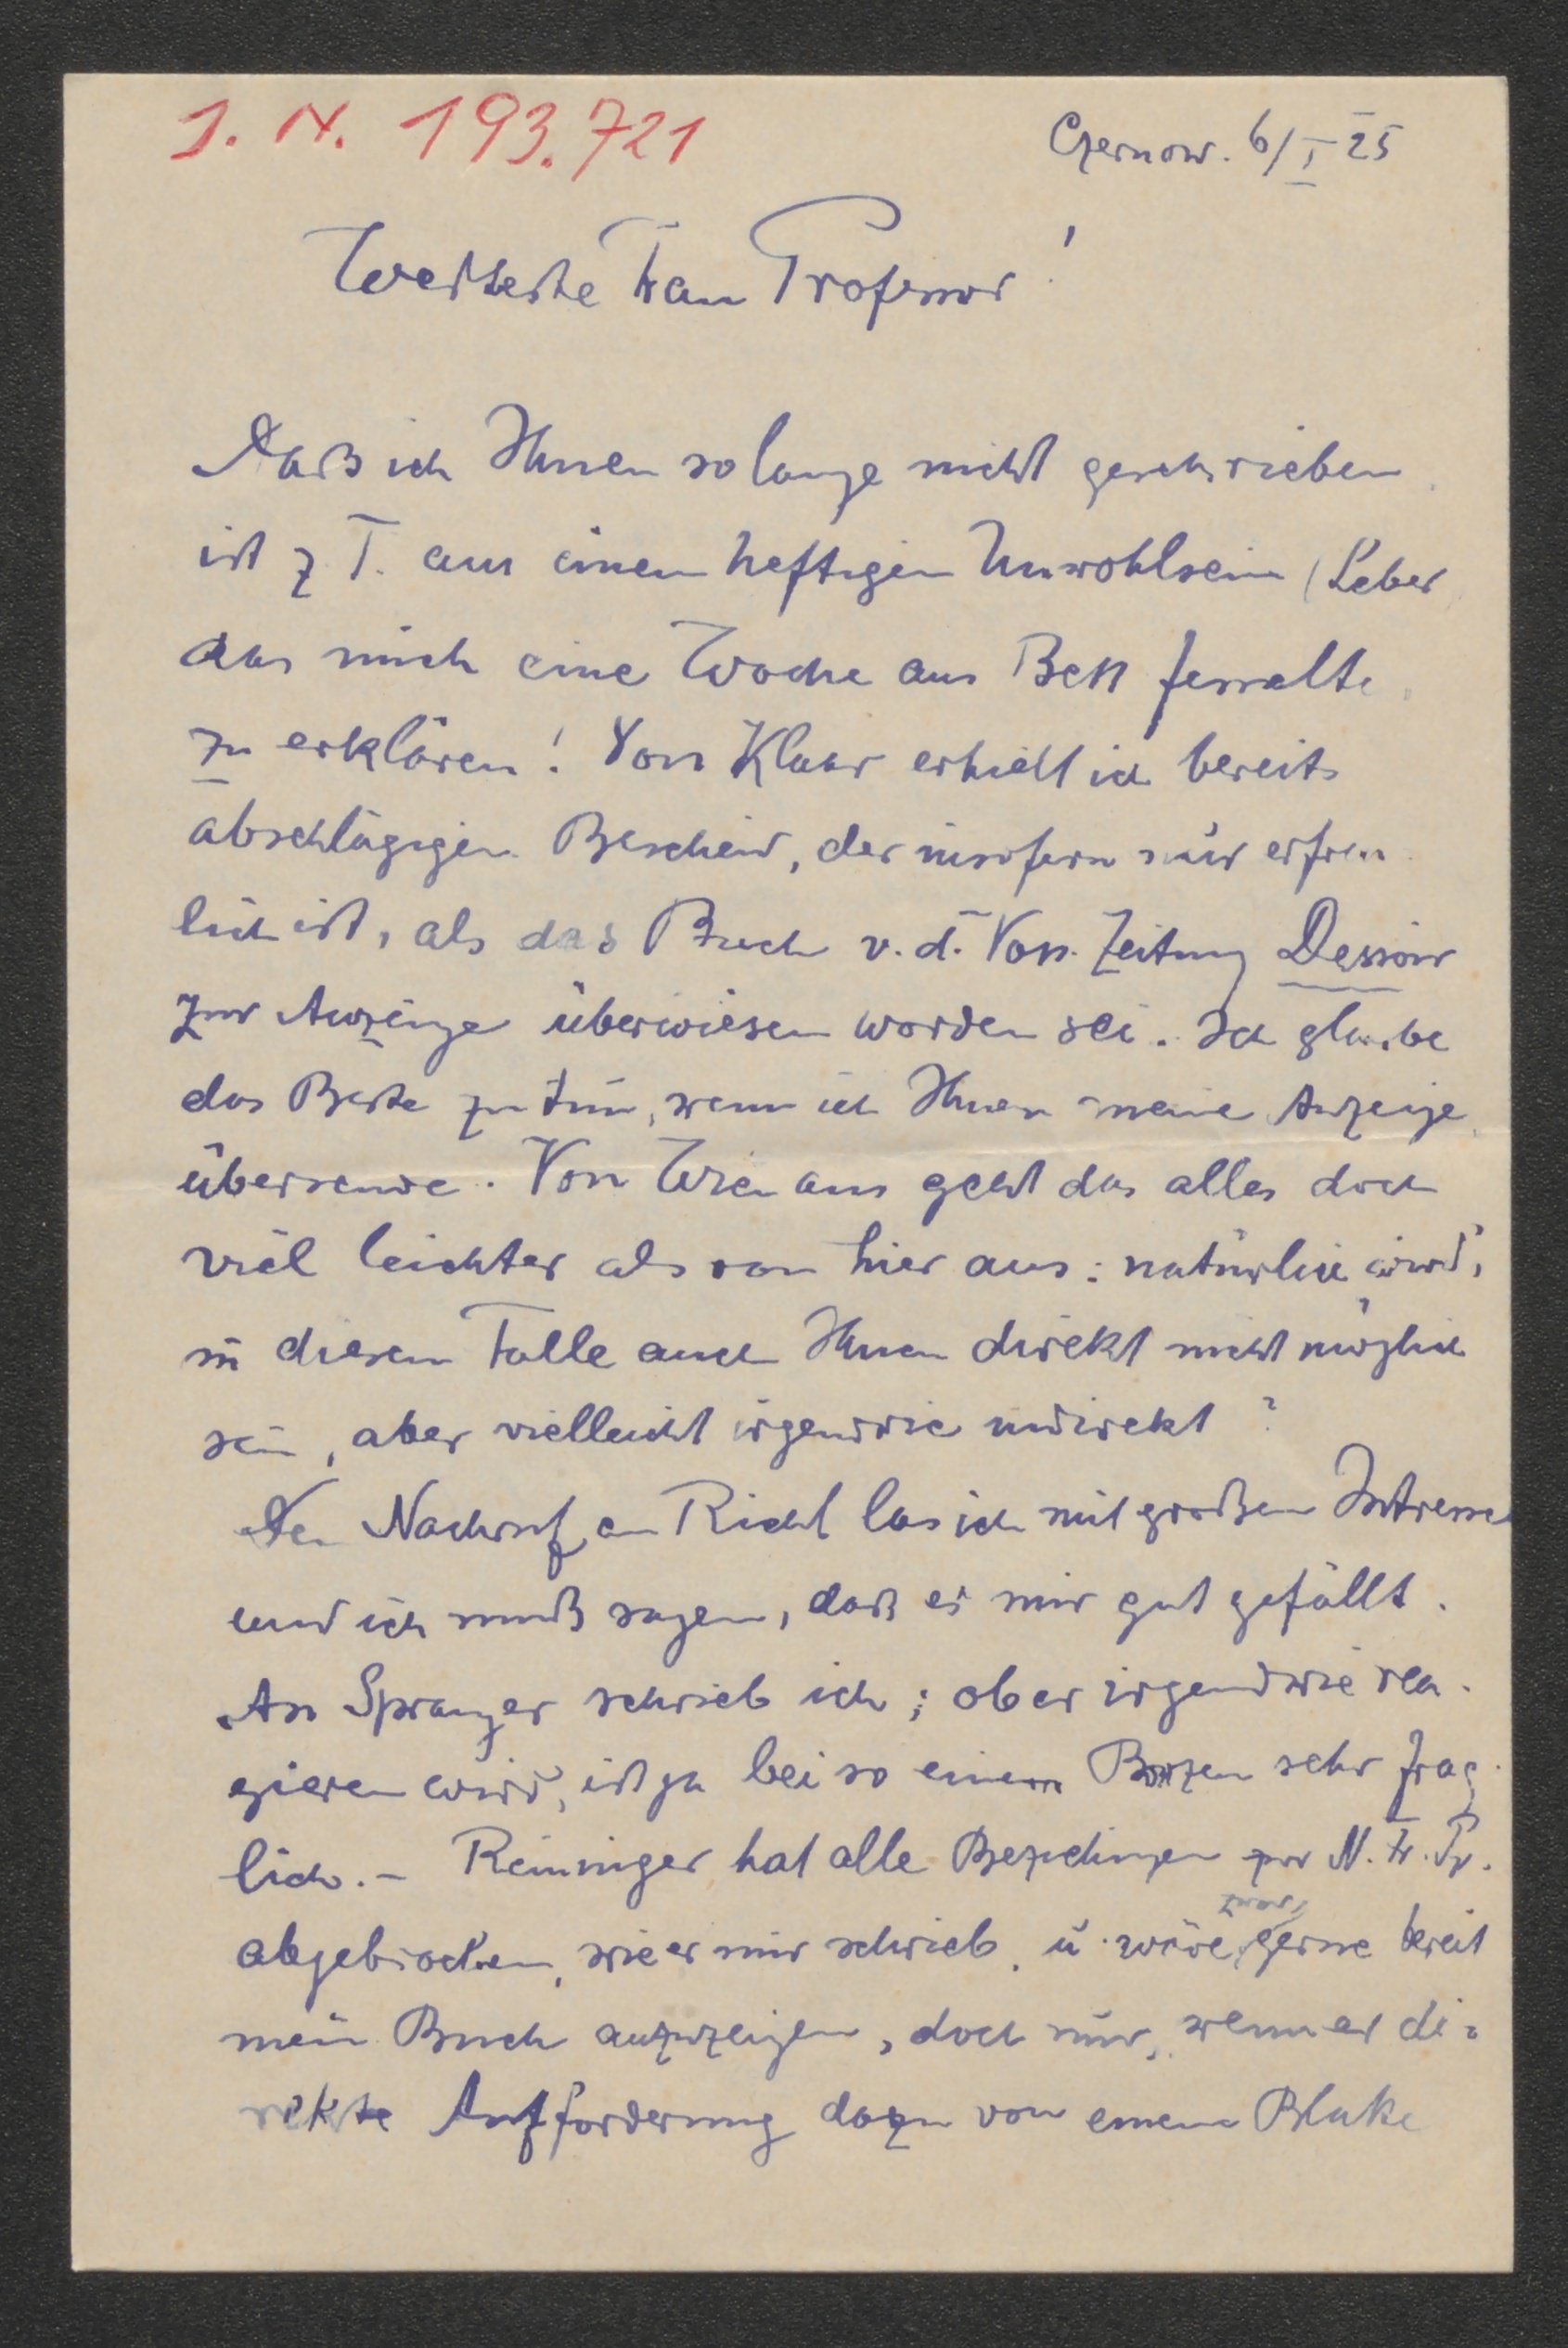 I. N. 193.721
Czernow. 6/I 25
Werteste Frau Professor!
Daß ich Ihnen so lange nicht geschrieben
ist z. T. aus einem heftigen Unwohlsein (Leber
das mich eine Woche ans Bett fesselte
zu erklären! Von Klaar erhielt ich bereits
abschlägigen Bescheid, der insofern nur erfreu
lich ist, als das Buch v. d. Voss. Zeitung Dessoir
zur Anzeige überwiesen worden sei. Ich glaube
das Beste zu tun, wenn ich Ihnen meine Anzeige
übersende. Von Wien aus geht das alles doch
viel leichter als von hier aus: natürlich wird,
in diesem Falle auch Ihnen direkt nicht möglich
sein, aber vielleicht irgendwie indirekt?
Den Nachruf an Riehl las ich mit großem Intresse
und ich muß sagen, daß es mir gut gefällt.
An Spranger schrieb ich; ob er irgendwie rea-
gieren wird, ist ja bei so einem Bonzen sehr frag-
lich. – Reininger hat alle Beziehungen zur N. Fr. Pr.
abgebrochen, wie er mir schrieb, u. wäre zwar gerne bereit
mein Buch anzuzeigen, doch nur, wenn er di-
rekte Aufforderung dazu von einem Blatte